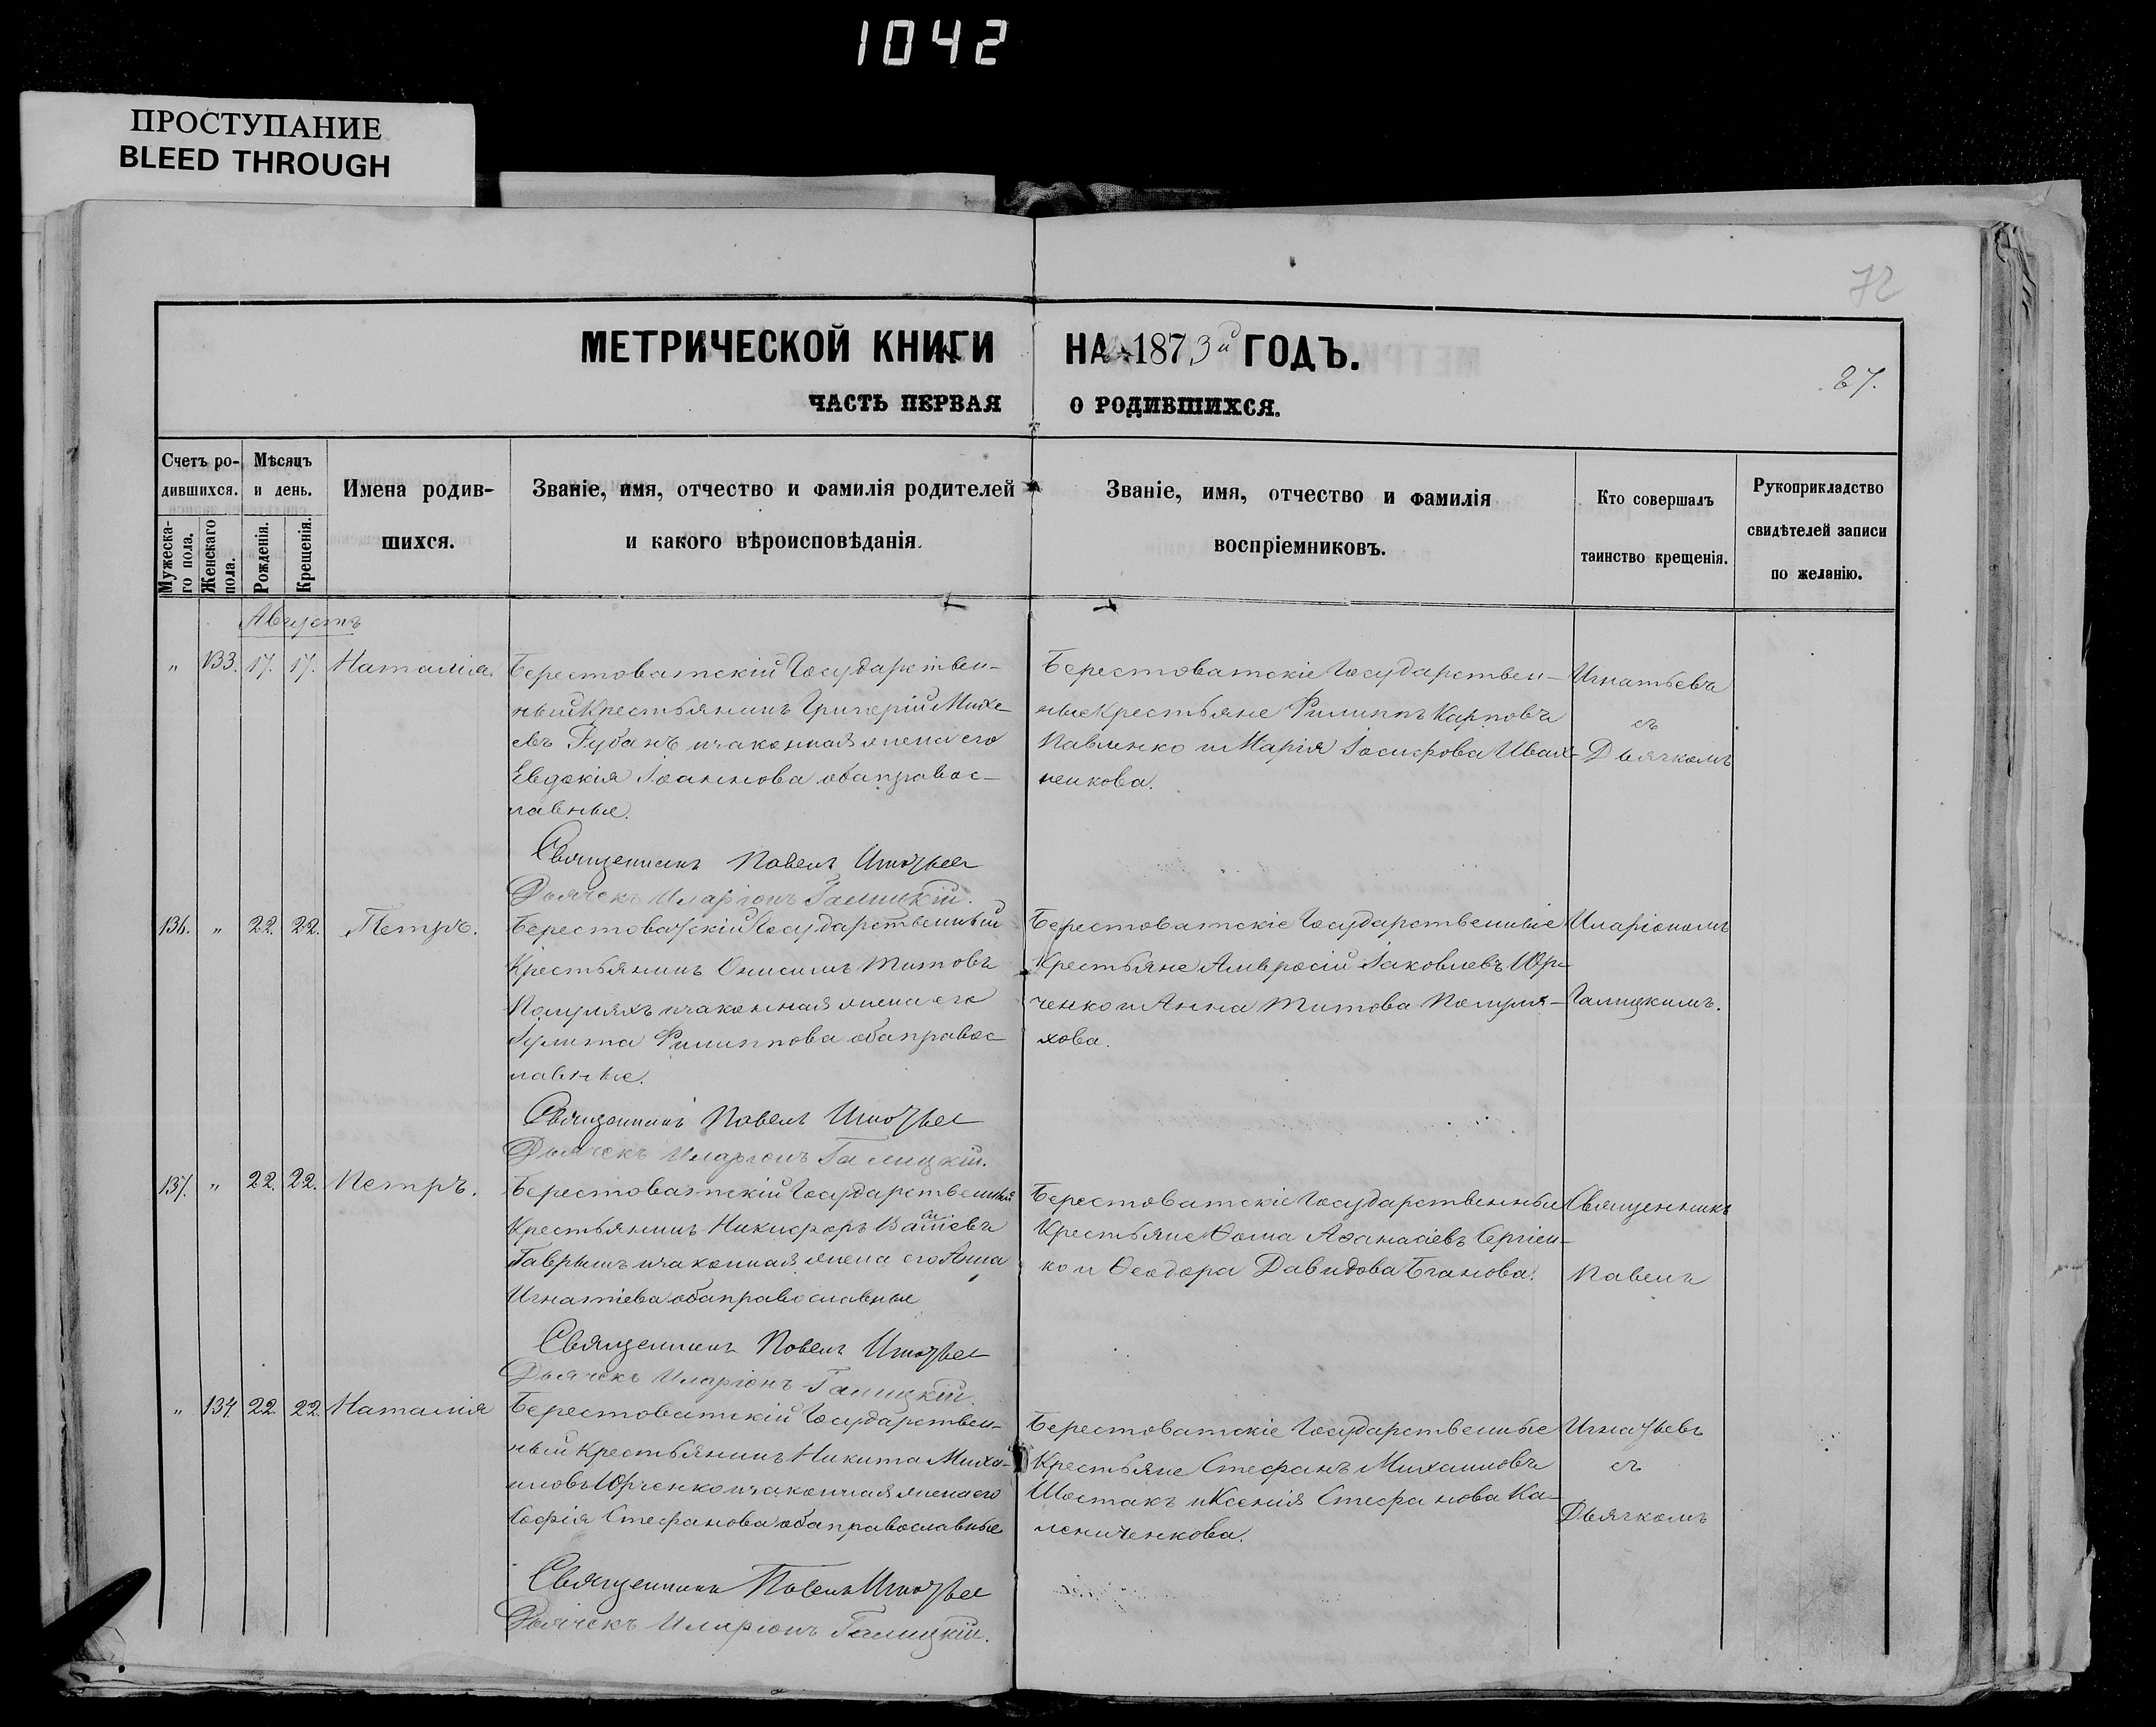 1042
ПРОСТУПАНИЕ
BLEED THROUGH
72
МЕТРИЧЕСКОЙ КНИГИ НА 1873й ГОДЪ.
87.
ЧАСТЬ ПЕРВАЯ О РОДИВШИХСЯ.
Счетъ ро-
дившихся.
Мужеска-
го пола.
Женскаго
пола.
Мѣсяцъ
и день.
Рожденія.
Крещенія.
Имена родив-
шихся.
Званіе, имя, отчество и фамилія родителей
и какого вѣроисповѣданія.
Званіе, имя, отчество и фамилія
воспріемниковъ.
Кто совершалъ
таинство крещенія.
Рукоприкладство
свидѣтелей записи
по желанію.
Августъ
" 133. 17. 17. Наталія.
Берестоватскій Государствен-
ный Крестьянинъ Григорій Михе
евъ Губанъ и законная жена его
Евдокія Іоаннова оба правос-
лавные.
Священникъ Павелъ Игнатьев
Дьячекъ Иларіонъ Галицкій.
Берестоватскіе Государствен-
ные Крестьяне Филиппъ Карповъ
Павленко и Марія Іосифова Ивах-
ненкова.
Игнатьевъ
съ
Дьячкомъ
136. " 22. 22. Петръ.
Берестоватскій Государственный
Крестьянинъ Онисимъ Титовъ
Полуляхъ и законная жена его
Іулита Филиппова оба правос
лавные.
Священникъ Павелъ Игнатьев
Дьячекъ Иларіонъ Галицкій.
Берестоватскіе Государственные
Крестьяне Амвросій Іаковлевъ Юр-
ченко и Анна Титова Полуля-
хова.
Иларіономъ
Галицкимъ.
137. " 22. 22. Петръ.
Берестоватскій Государственный
Крестьянинъ Никифоръ Василіевъ
Гаврышъ и законная жена его Анна
Игнатіева оба православные
Священникъ Павелъ Игнатьев
Дьячекъ Иларіонъ Галицкій.
Берестоватскіе Государственные
Крестьяне Ѳома Аѳанасіевъ Сергіен-
ко и Ѳеодора Давидова Бганова.
Священникъ
Павелъ
" 134. 22. 22. Наталія
Берестоватскій Государствен-
ный Крестьянинъ Никита Миха-
иловъ Юрченко и законная жена его
Софія Стефанова оба православные
Священникъ Павелъ Игнатьев
Дьячекъ Иларіонъ Галицкій.
Берестоватскіе Государственные
Крестьяне Стефанъ Михаиловъ
Шостакъ и Ксенія Стефанова Ка-
лениченкова.
Игнатьевъ
съ
Дьячкомъ